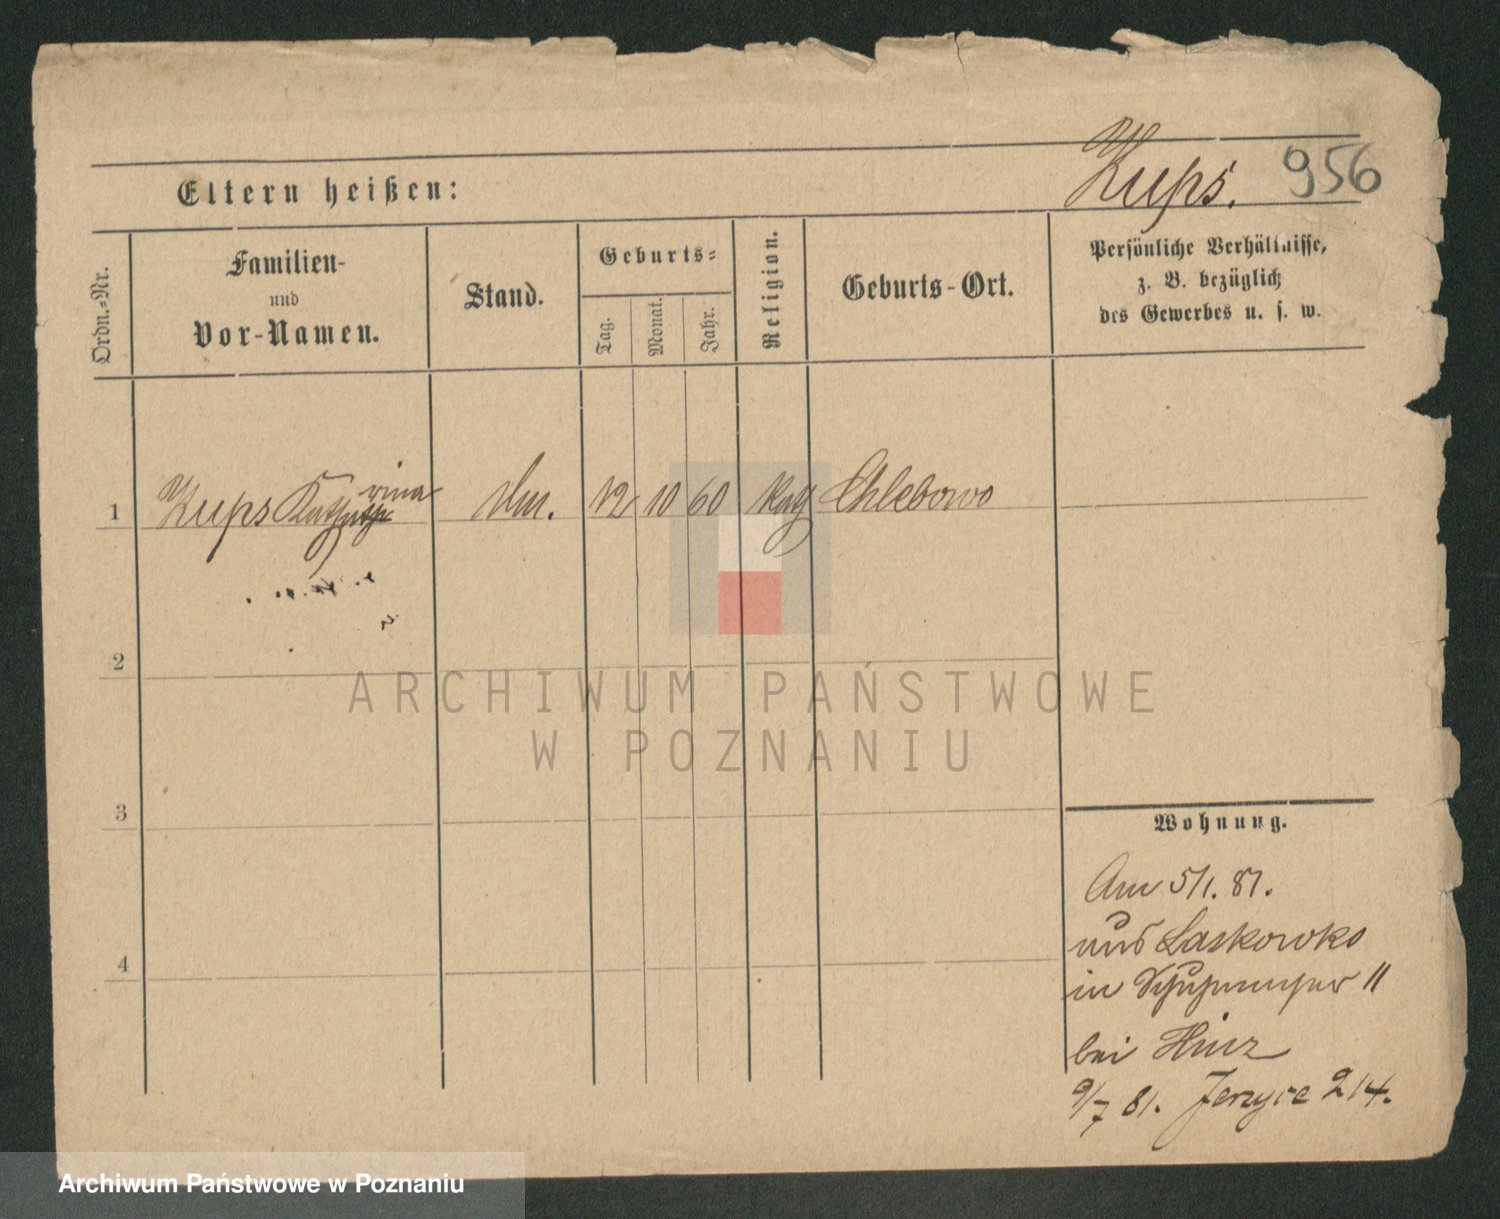 Kups. 956
Eltern heißen:
Ordn.-Nr.
Familien-
und
Vor-Namen.
Stand.
Geburts-
Tag.
Monat.
Jahr.
Religion.
Geburts-Ort.
Persönliche Verhältnisse,
z. B. bezüglich
des Gewerbes u. s. w.
1 Kups Katharina 12 10 60 Kath Chlebowo
2
3
4
ARCHIWUM PAŃSTWOWE
W POZNANIU
Wohnung.
Am 5/1. 81.
aus Laskowko
in Schuhmacher 11
bei Hinz
9/7 81. Jerzyce 214.
Archiwum Państwowe w Poznaniu